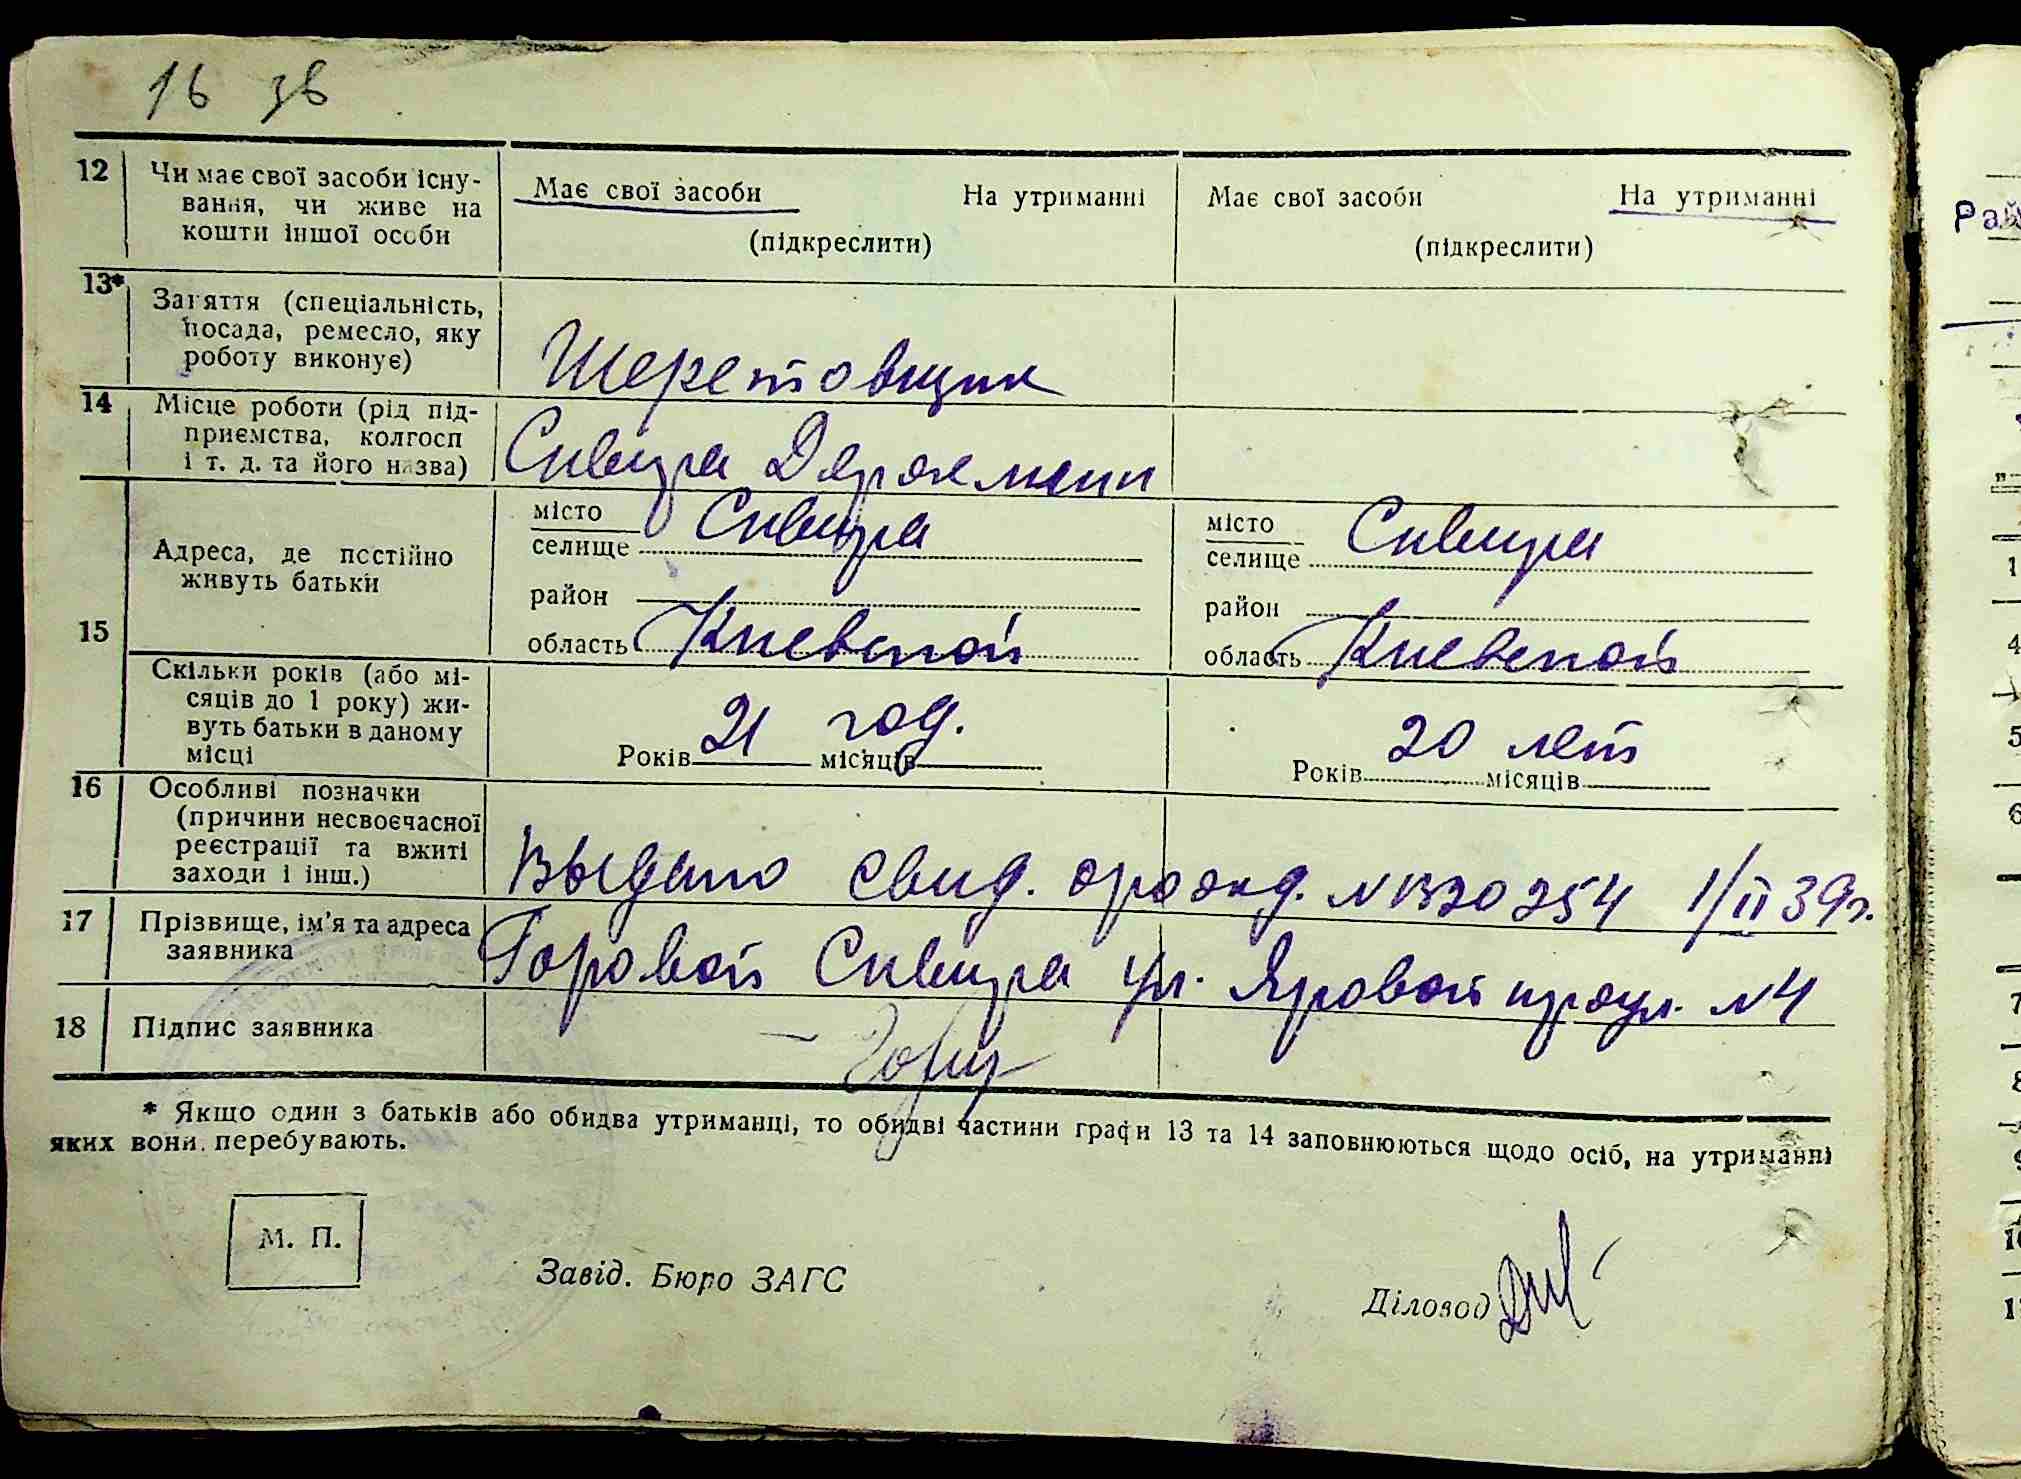 16 зв
12 Чи має свої засоби існу-
вання, чи живе на
кошти іншої особи
Має свої засоби На утриманні
(підкреслити)
Має свої засоби На утриманні
(підкреслити)
13* Заняття (спеціальність,
посада, ремесло, яку
роботу виконує)
Шеретовщик
14 Місце роботи (рід під-
приємства, колгосп
і т. д. та його назва)
Сквира
15 Адреса, де постійно
живуть батьки
місто Сквира
селище
район
область Киевской
місто Сквира
селище
район
область Киевской
Скільки років (або мі-
сяців до 1 року) жи-
вуть батьки в даному
місці
Років 21 год. місяців
Років 20 лет місяців
16 Особливі позначки
(причини несвоєчасної
реєстрації та вжиті
заходи і інш.)
Выдано свид. о рожд. 1/II 39 г.
17 Прізвище, ім'я та адреса
заявника
Горовой Сквира ул. Яровой проул. №4
18 Підпис заявника
* Якщо один з батьків або обидва утриманці, то обидві частини графи 13 та 14 заповнюються щодо осіб, на утриманні
яких вони перебувають.
М. П.
Завід. Бюро ЗАГС
Діловод
Рай